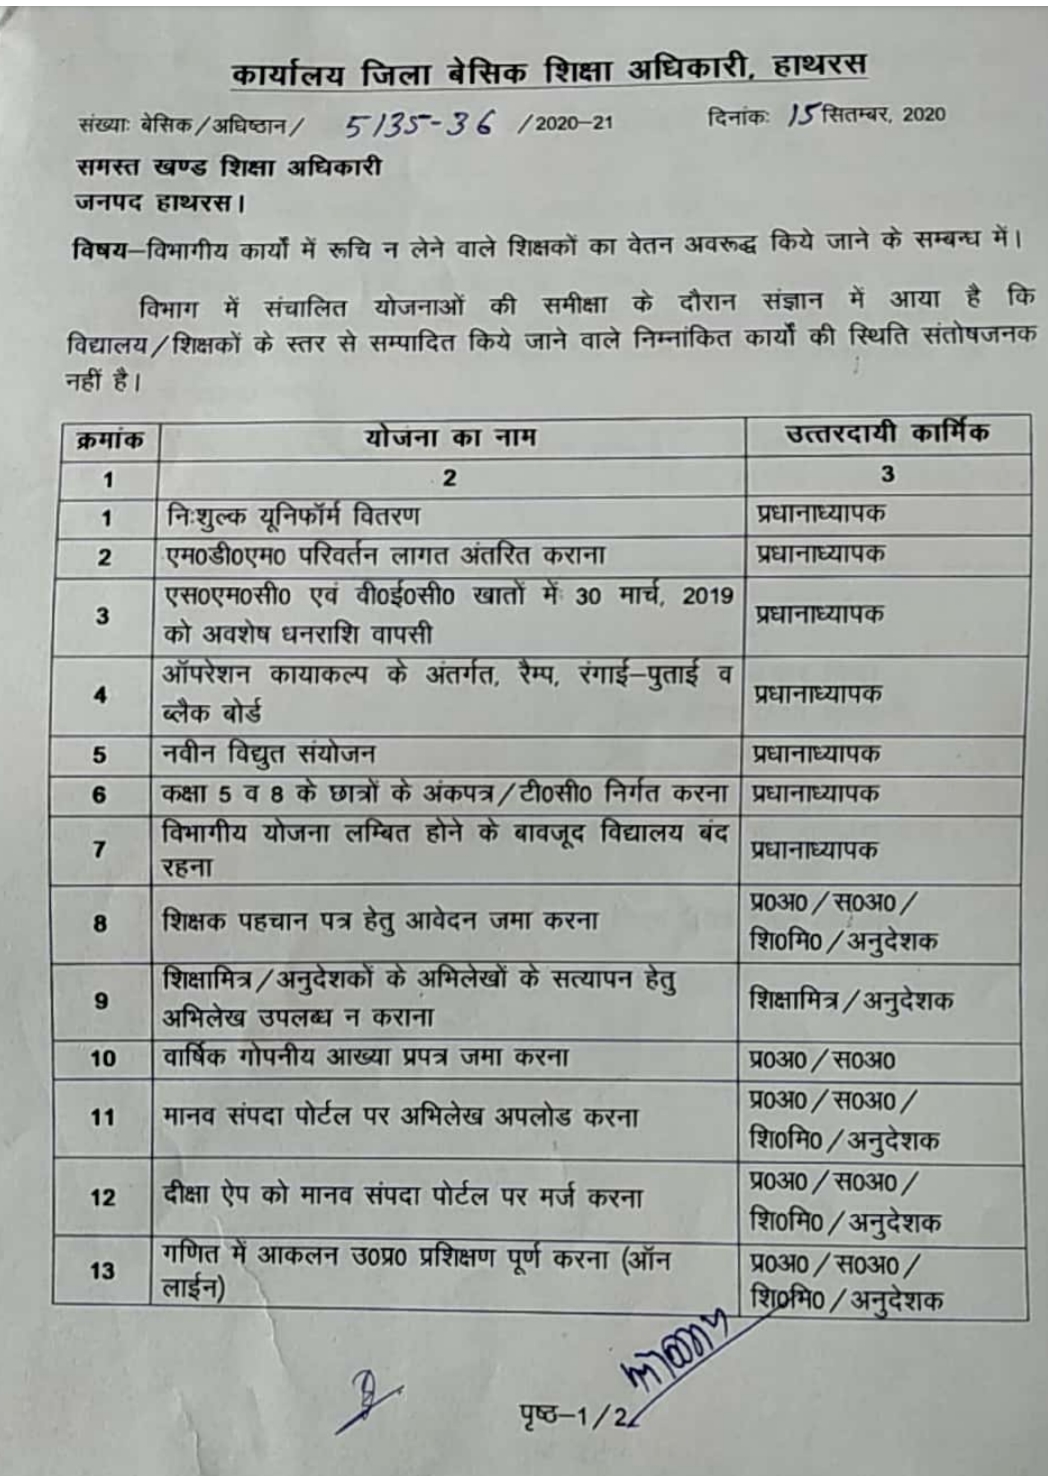 कार्यालय जिला बेसिक शिक्षा अधिकारी, हाथरस
संख्याः बेसिक/अधिष्ठान/ 5135-36 /2020-21 दिनांकः 15 सितम्बर, 2020
समस्त खण्ड शिक्षा अधिकारी
जनपद हाथरस।
विषय–विभागीय कार्यों में रूचि न लेने वाले शिक्षकों का वेतन अवरूद्ध किये जाने के सम्बन्ध में।
विभाग में संचालित योजनाओं की समीक्षा के दौरान संज्ञान में आया है कि
विद्यालय/शिक्षकों के स्तर से सम्पादित किये जाने वाले निम्नांकित कार्यों की स्थिति संतोषजनक
नहीं है।
क्रमांक योजना का नाम उत्तरदायी कार्मिक
1 2 3
1 निःशुल्क यूनिफॉर्म वितरण प्रधानाध्यापक
2 एम0डी0एम0 परिवर्तन लागत अंतरित कराना प्रधानाध्यापक
3 एस0एम0सी0 एवं वी0ई0सी0 खातों में 30 मार्च, 2019 प्रधानाध्यापक
को अवशेष धनराशि वापसी
4 ऑपरेशन कायाकल्प के अंतर्गत, रैम्प, रंगाई–पुताई व प्रधानाध्यापक
ब्लैक बोर्ड
5 नवीन विद्युत संयोजन प्रधानाध्यापक
6 कक्षा 5 व 8 के छात्रों के अंकपत्र/टी0सी0 निर्गत करना प्रधानाध्यापक
7 विभागीय योजना लम्बित होने के बावजूद विद्यालय बंद प्रधानाध्यापक
रहना
8 शिक्षक पहचान पत्र हेतु आवेदन जमा करना प्र0अ0/स0अ0/
शि0मि0/अनुदेशक
9 शिक्षामित्र/अनुदेशकों के अभिलेखों के सत्यापन हेतु शिक्षामित्र/अनुदेशक
अभिलेख उपलब्ध न कराना
10 वार्षिक गोपनीय आख्या प्रपत्र जमा करना प्र0अ0/स0अ0
11 मानव संपदा पोर्टल पर अभिलेख अपलोड करना प्र0अ0/स0अ0/
शि0मि0/अनुदेशक
12 दीक्षा ऐप को मानव संपदा पोर्टल पर मर्ज करना प्र0अ0/स0अ0/
शि0मि0/अनुदेशक
13 गणित में आकलन उ0प्र0 प्रशिक्षण पूर्ण करना (ऑन प्र0अ0/स0अ0/
लाईन) शि0मि0/अनुदेशक
पृष्ठ–1/2